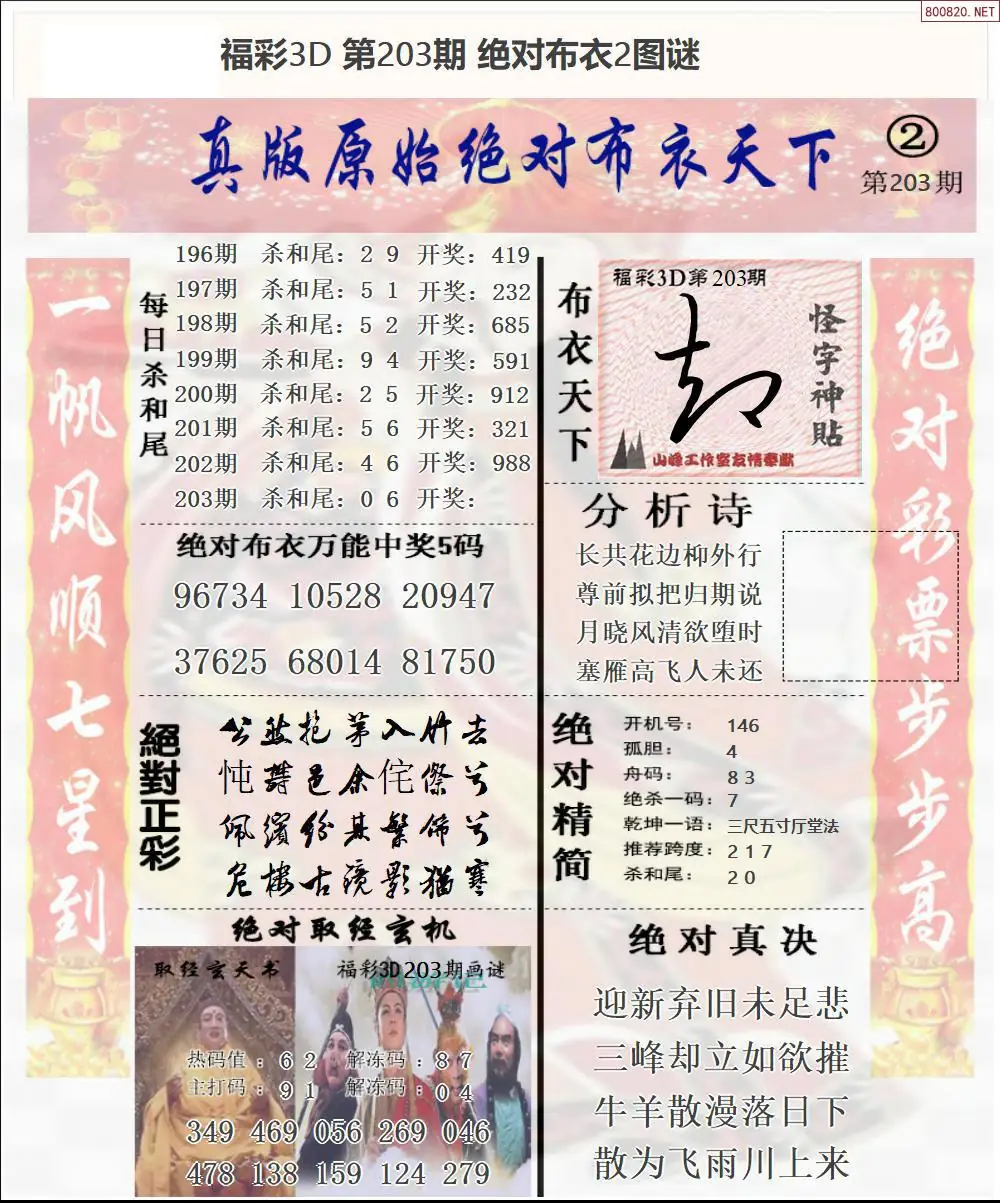 800820.NET
福彩3D 第203期 绝对布衣2图谜
真版原始绝对布衣天下
②
第203期
一帆风顺七星到
每日杀和尾
196期 杀和尾：2 9 开奖：419
197期 杀和尾：5 1 开奖：232
198期 杀和尾：5 2 开奖：685
199期 杀和尾：9 4 开奖：591
200期 杀和尾：2 5 开奖：912
201期 杀和尾：5 6 开奖：321
202期 杀和尾：4 6 开奖：988
203期 杀和尾：0 6 开奖：
绝对布衣万能中奖5码
96734 10528 20947
37625 68014 81750
絕對正彩
公然抱茅入竹去
忳 邑余侘傺兮
佩缤纷其繁饰兮
危楼古镜影犹寒
绝对取经玄机
取经玄天书
福彩3D203期画谜
热码值：6 2 解冻码：8 7
主打码：9 1 解冻码：0 4
349 469 056 269 046
478 138 159 124 279
布衣天下
福彩3D第203期
怪字神貼
山峰工作室友情奉献
分析诗
长共花边柳外行
尊前拟把归期说
月晓风清欲堕时
塞雁高飞人未还
绝对精简
开机号： 146
孤胆： 4
舟码： 8 3
绝杀一码：7
乾坤一语：三尺五寸厅堂法
推荐跨度：2 1 7
杀和尾： 2 0
绝对真决
迎新弃旧未足悲
三峰却立如欲摧
牛羊散漫落日下
散为飞雨川上来
绝对彩票步步高